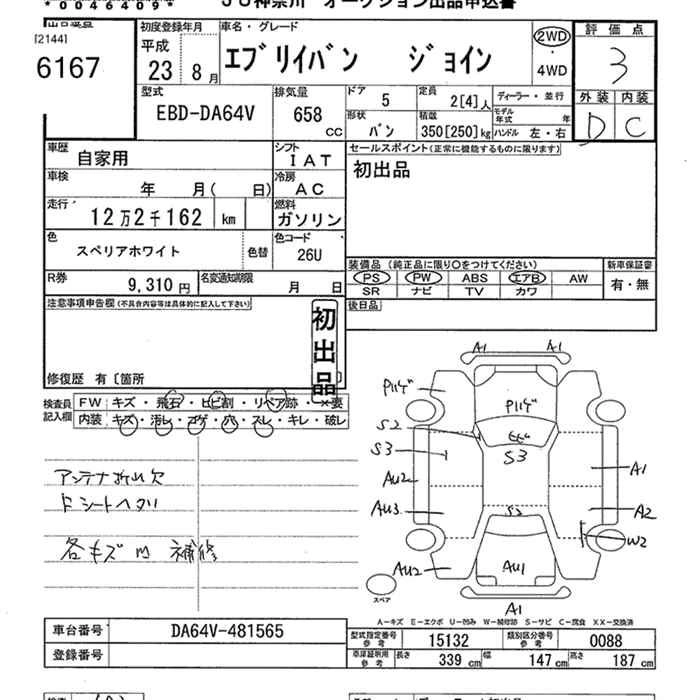 *00464609*
JU神奈川 オークション出品申込書
出品番号
[2144]
6167
初度登録年月
平成
23年8月
車名・グレード
エブリイバン ジョイン
2WD
・
4WD
評価点
3
外装 内装
D C
型式
EBD-DA64V
排気量
658
CC
ドア
5
定員
2[4]人
形状
バン
積載
350[250]kg
ディーラー・並行
モデル年式 年
ハンドル 左・右
車歴
自家用
シフト
IAT
セールスポイント(正常に機能するものに限ります)
初出品
車検
年 月( 日)
冷房
AC
走行
12万2千162 km
燃料
ガソリン
色
スペリアホワイト
色替
色コード
26U
R券
9,310円
名変通知期限
月 日
装備品(純正品に限り○をつけてください)
PS PW ABS エアB AW
SR ナビ TV カワ
新車保証書
有・無
後日品
注意事項申告欄(不具合内容等は具体的に記入して下さい)
初出品
修復歴 有〔箇所
検査員記入欄
FW キズ・飛石・ヒビ割・リペア跡・×要
内装 キズ・汚レ・コゲ・穴・スレ・キレ・破レ
アンテナ折れ欠
Fシートヘタリ
各キズ凹 補修
A1 A1
P11ゲ
P11ゲ
S2
S3
S3
AU2
A1
AU3
S2
A2
W2
AU2
AU1
スペア
A1
A−キズ E−エクボ U−凹み W−補修跡 S−サビ C−腐食 XX−交換済
車台番号
DA64V-481565
登録番号
型式指定番号
参考
15132
類別区分番号
参考
0088
車庫証明用
参考
長さ
339cm
幅
147cm
高さ
187cm